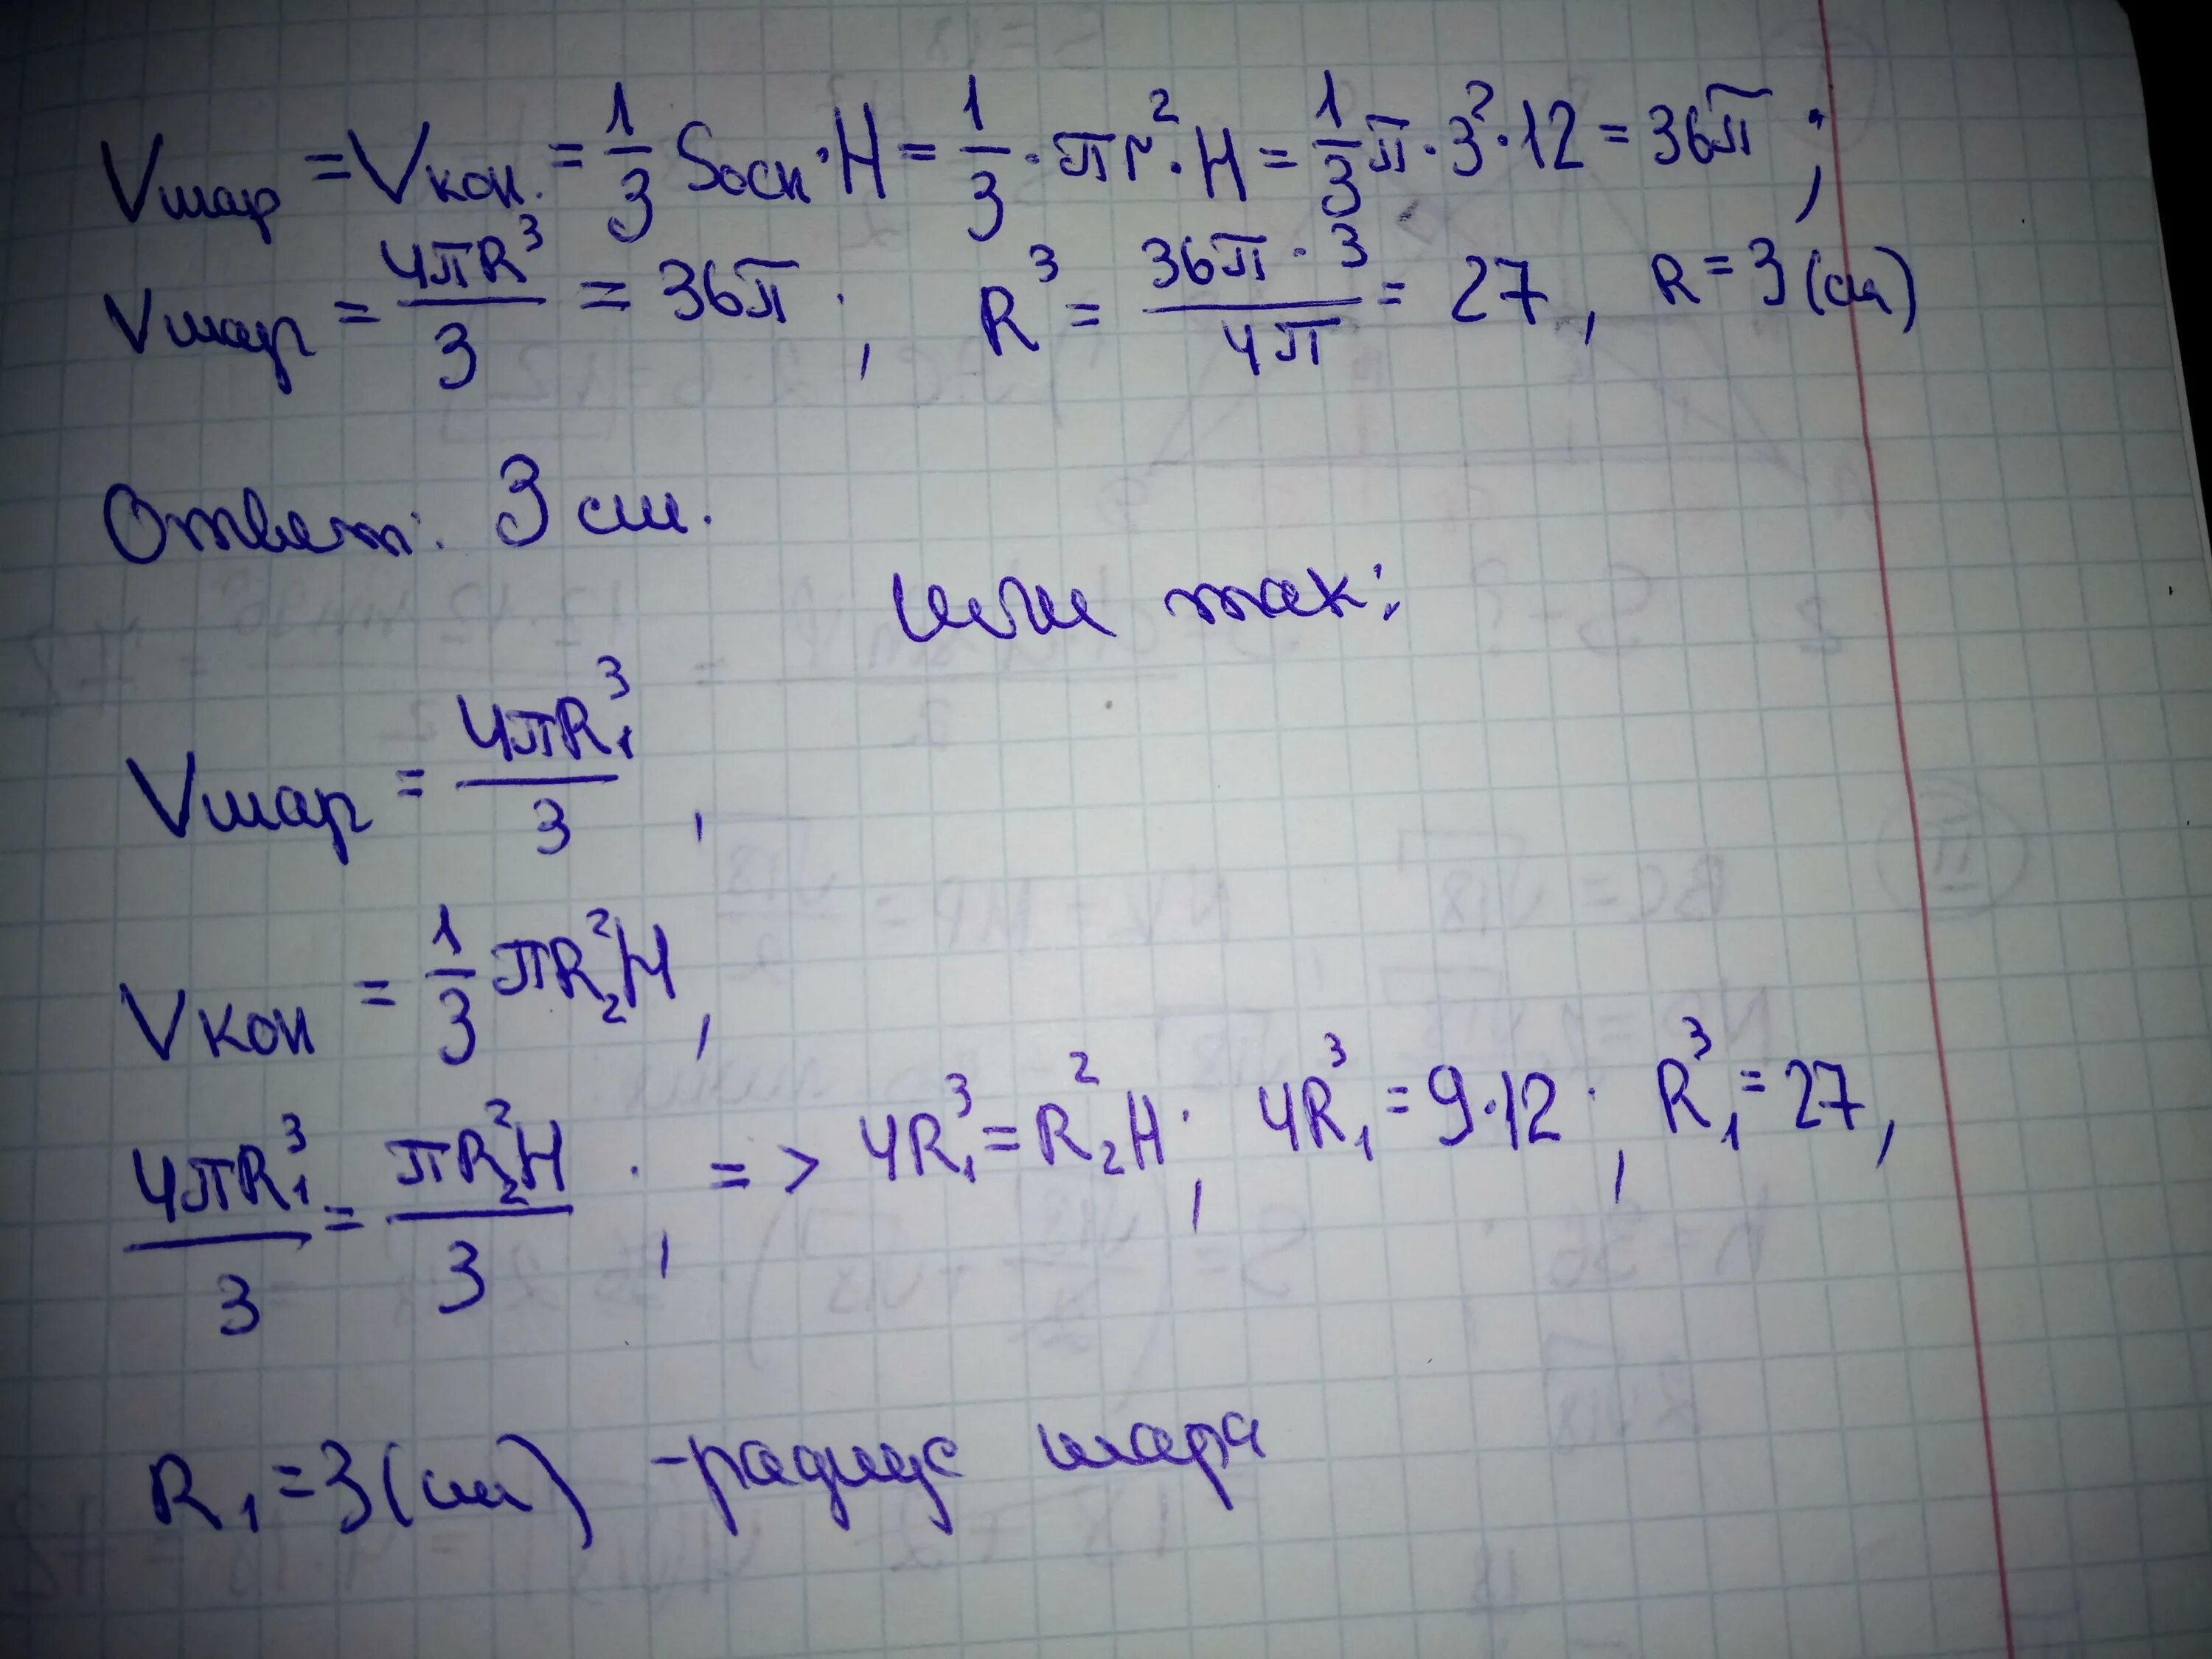 Vшар = Vкон. = 1/3 Sосн·H = 1/3 · πr²·H = 1/3 π·3²·12 = 36π ;
Vшар = 4πR³/3 = 36π ; R³ = 36π·3/4π = 27, R = 3 (см)
Ответ: 3 см.
или так:
Vшар = 4πR₁³/3 ,
Vкон = 1/3 πR₂²H,
4πR₁³/3 = πR₂²H/3 ; => 4R₁³ = R₂²H ; 4R₁³ = 9·12 ; R₁³ = 27,
R₁ = 3 (см) - радиус шара